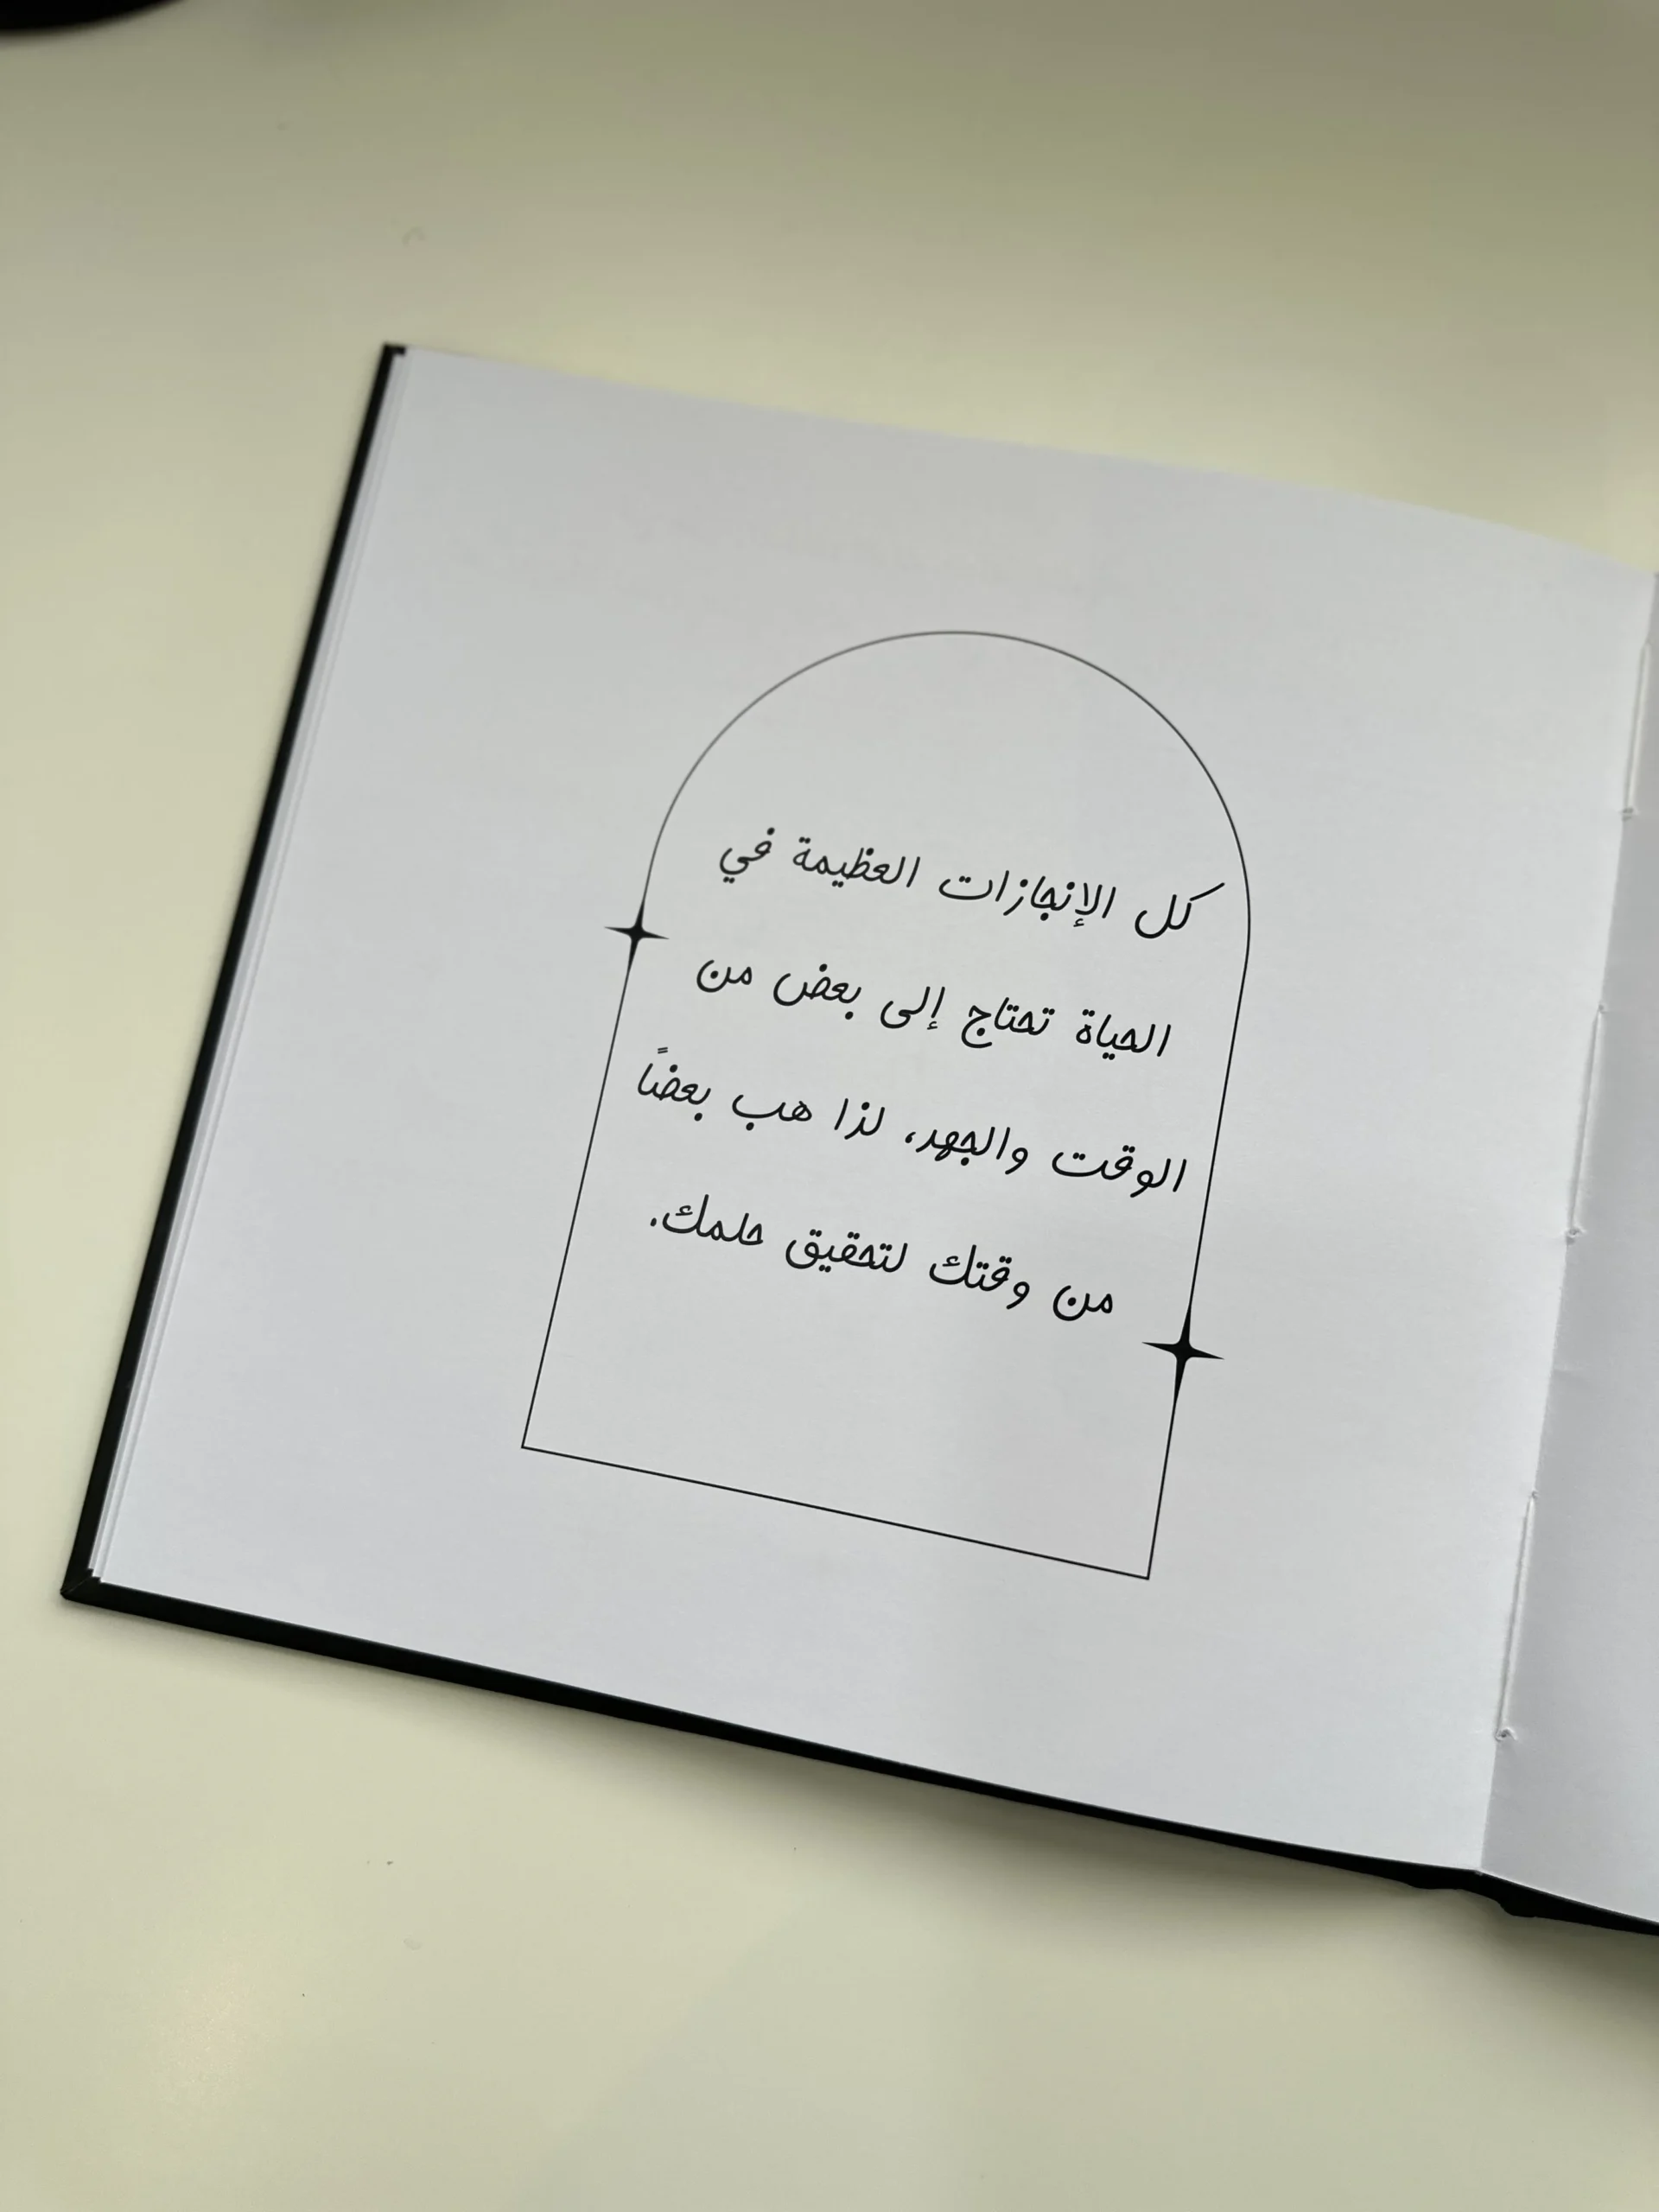 كل الإنجازات العظيمة في
الحياة تحتاج إلى بعض من
الوقت والجهد، لذا هب بعضاً
من وقتك لتحقيق حلمك.